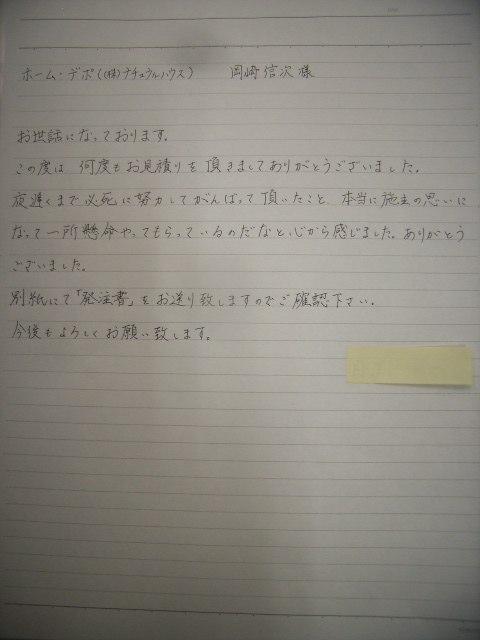 ホーム・デポ((株)ナチュラルハウス) 岡崎信次様
お世話になっております。
この度は 何度もお見積りを頂きましてありがとうございました。
夜遅くまで必死に努力してがんばって頂いたこと 本当に施主の思いに
なって一所懸命やってもらっているのだなと心から感じました。ありがとう
ございました。
別紙にて「発注書」をお送り致しますのでご確認下さい。
今後もよろしくお願い致します。